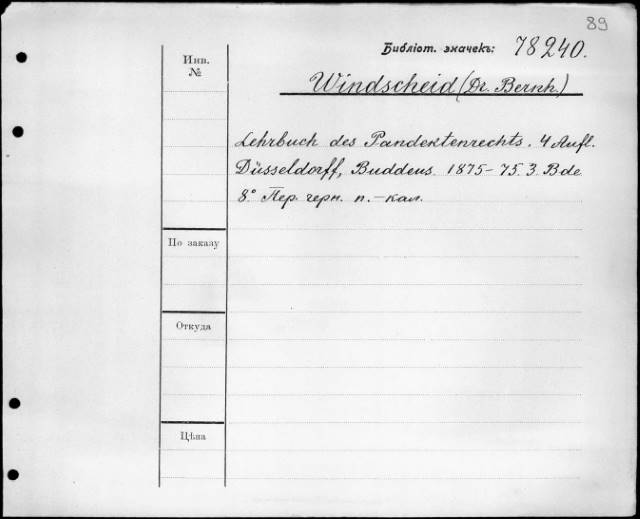 89
Библіот. значекъ: 78240.
Инв.
№
Windscheid (Dr. Bernh.)
Lehrbuch des Pandektenrechts. 4 Aufl.
Düsseldorff, Buddeus. 1875-75. 3. Bde
8° Пер. черн. п.-кал.
По заказу
Откуда
Цѣна